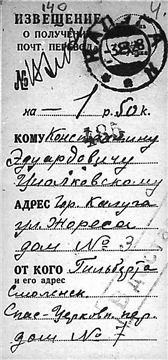 ИЗВЕЩЕНИЕ
О ПОЛУЧЕН
ПОЧТ. ПЕРЕВОД
№
на — 1 р. 50 к.
КОМУ Константину
Эдуардовичу
Циолковскому
АДРЕС Гор. Калуга
ул. Жореса
дом № 3
ОТ КОГО
и его адрес
Смоленск.
Спас-Церковн. пер.
дом № 7